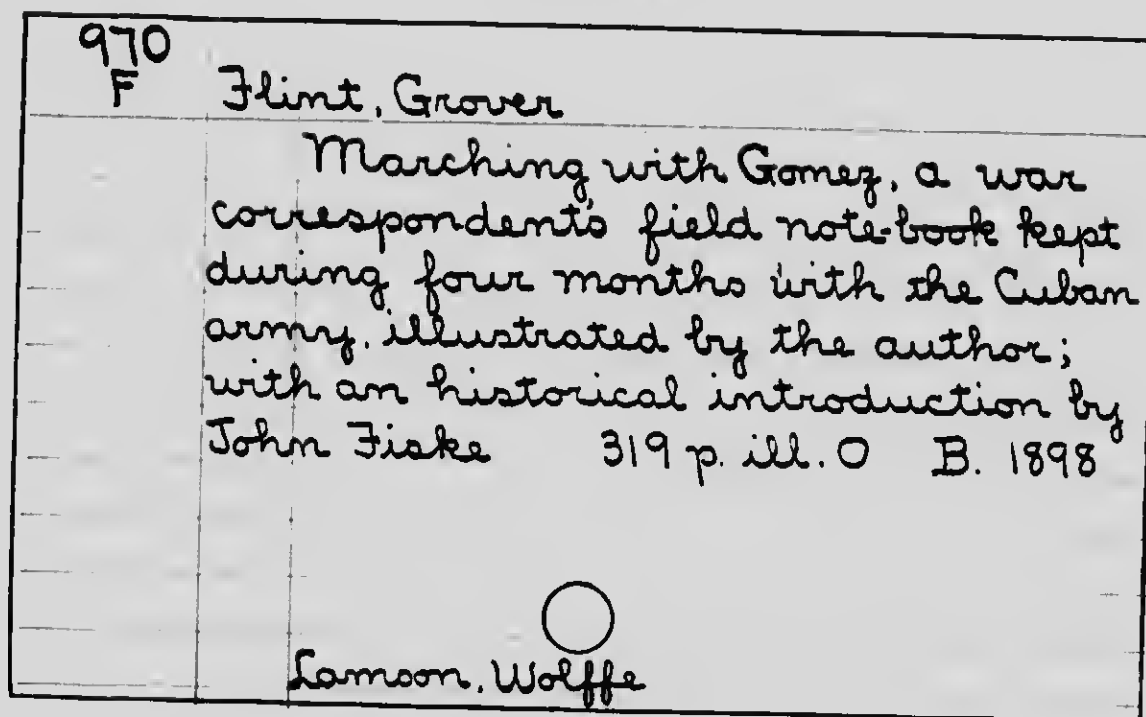 970
F Flint, Grover
Marching with Gomez, a war
correspondent's field note-book kept
during four months with the Cuban
army, illustrated by the author;
with an historical introduction by
John Fiske 319 p. ill. O B. 1898
Lamson, Wolffe